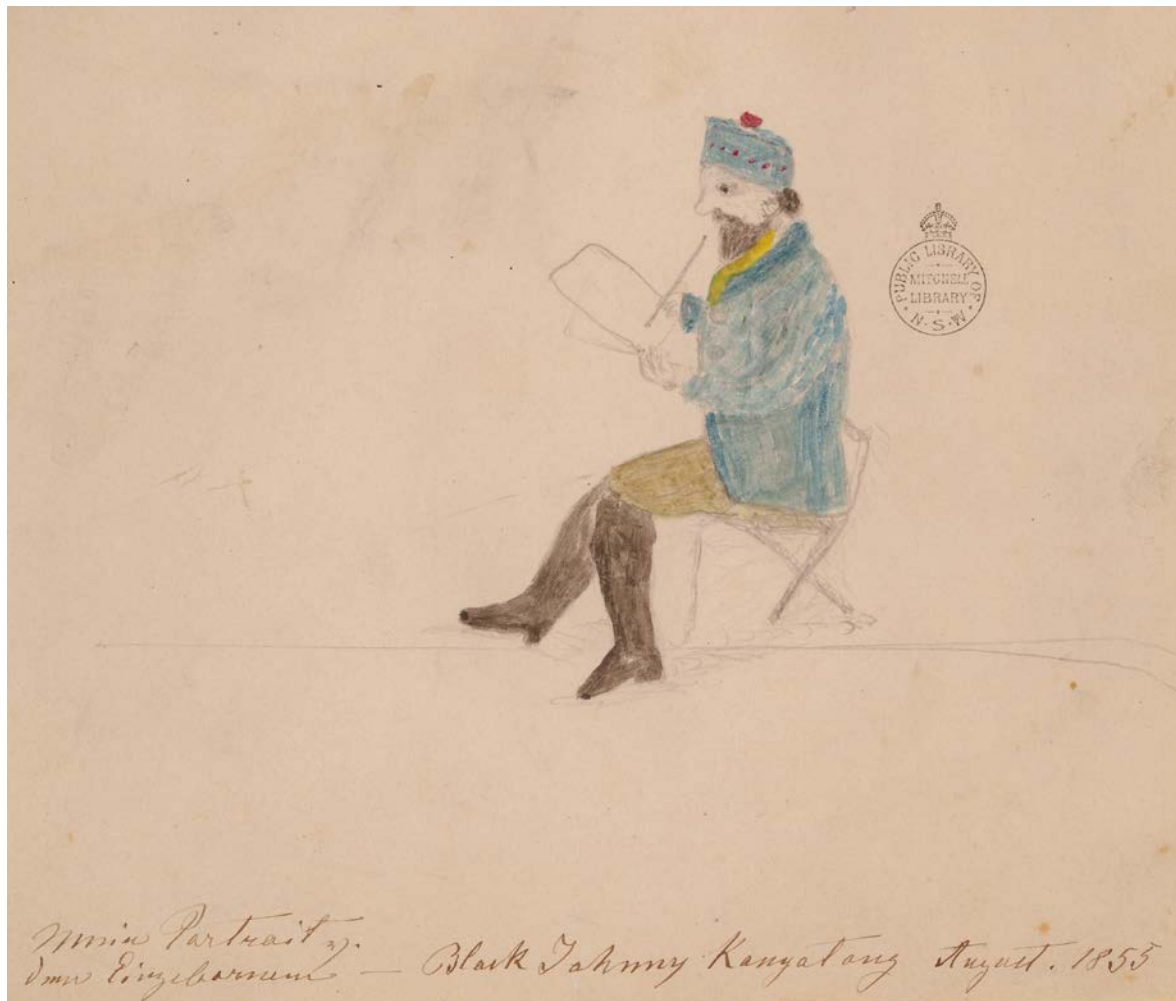 PUBLIC LIBRARY OF N·S·W
MITCHELL
LIBRARY
Mein Portrait v.
dem Eingebornem — Black Johnny Kangatong August. 1855